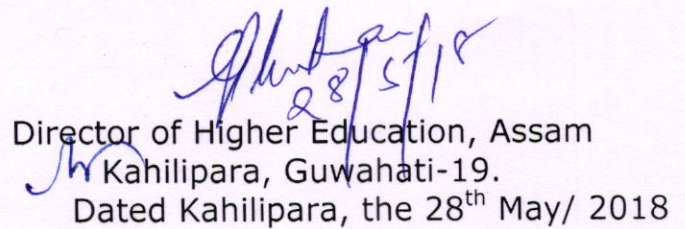 28/5/18
Director of Higher Education, Assam
Kahilipara, Guwahati-19.
Dated Kahilipara, the 28th May/ 2018